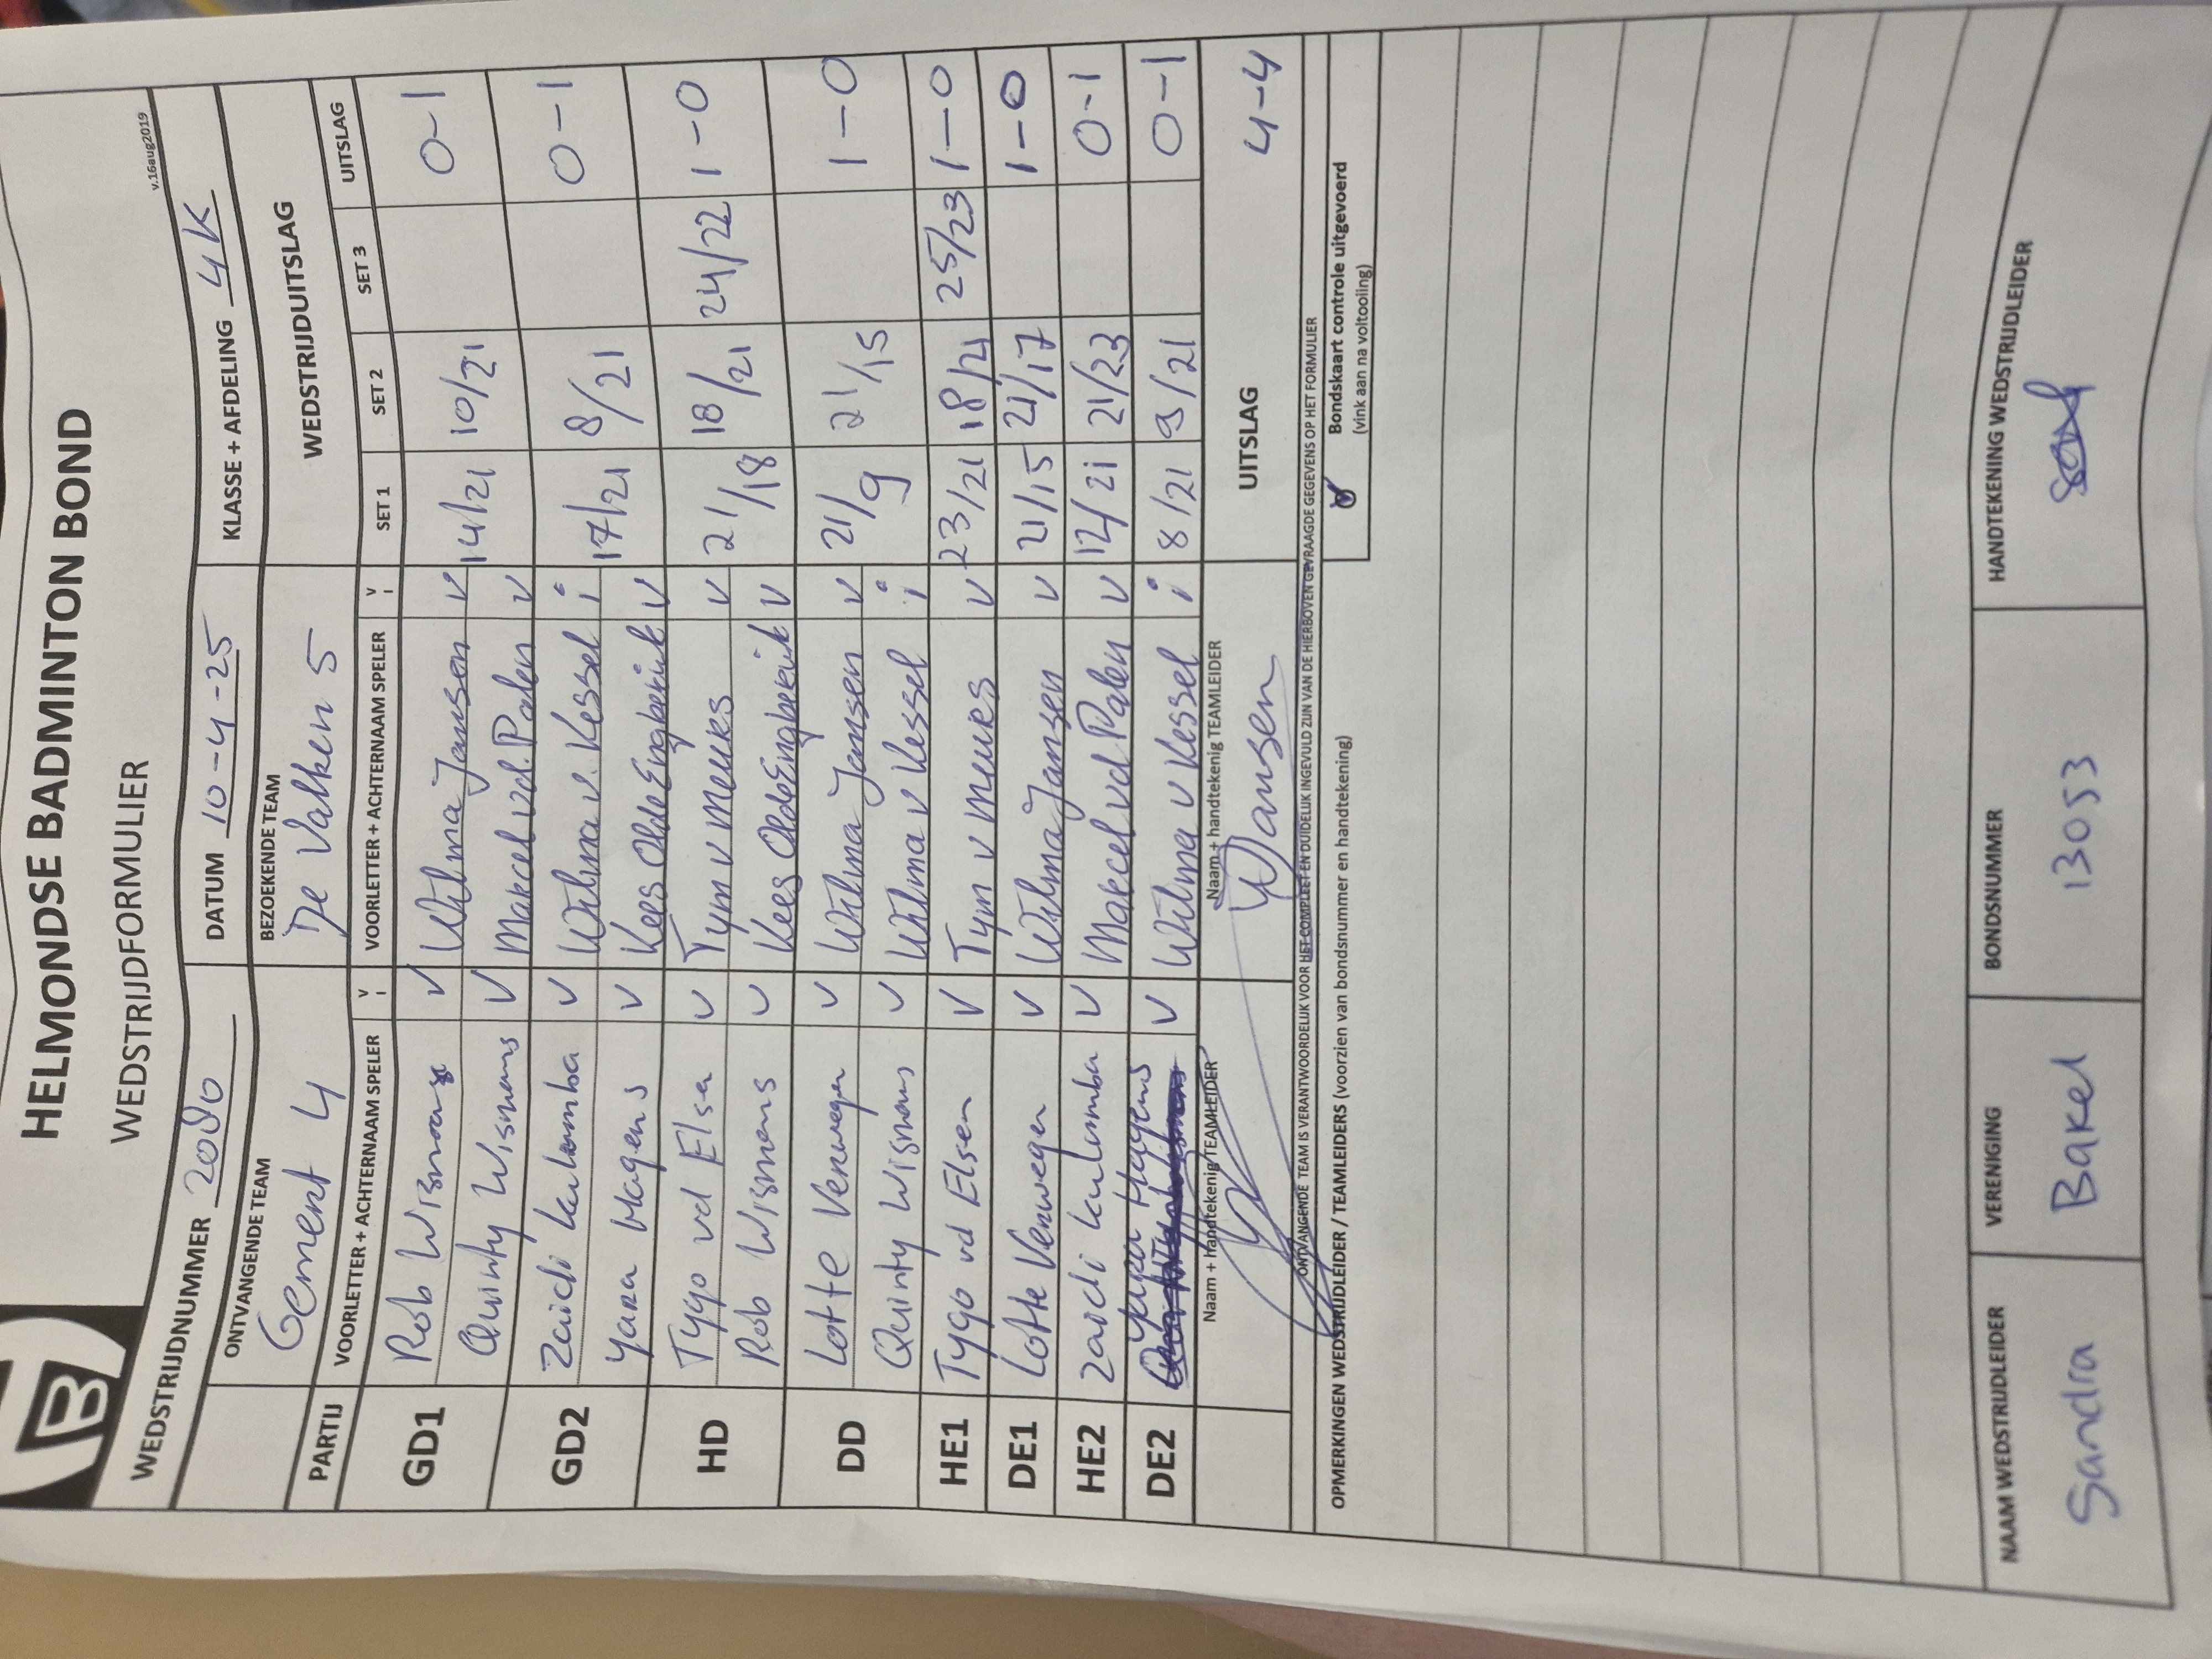 HB
HELMONDSE BADMINTON BOND
WEDSTRIJDFORMULIER
v.16aug2019
WEDSTRIJDNUMMER 20080 DATUM 10-4-25 KLASSE + AFDELING 4K
ONTVANGENDE TEAM BEZOEKENDE TEAM WEDSTRIJDUITSLAG
Gemert 4 De Valken 5
PARTIJ VOORLETTER + ACHTERNAAM SPELER V I VOORLETTER + ACHTERNAAM SPELER V I SET 1 SET 2 SET 3 UITSLAG
GD1 Rob Wismans V Wilma Jansen V 14/21 10/21 0-1
Quinty Wismans V Marcel vd. Palen V
GD2 Zaidi Kulumba V Wilma v. Kessel i 17/21 8/21 0-1
Yara Hagens V Kees Olde Engberink V
HD Tygo vd Elsen V Tym v Meurs V 21/18 18/21 24/22 1-0
Rob Wismans V Kees Olde Engberink V
DD Lotte Verwegen V Wilma Jansen V 21/9 21/15 1-0
Quinty Wismans V Wilma v Kessel i
HE1 Tygo vd Elsen V Tym v Meurs V 23/21 18/21 25/23 1-0
DE1 Lotte Verwegen V Wilma Jansen V 21/15 21/17 1-0
HE2 Zaidi Kulumba V Marcel vd Palen V 12/21 21/23 0-1
DE2 Yara Hagens V Wilma v Kessel i 8/21 9/21 0-1
Naam + handtekenig TEAMLEIDER Naam + handtekenig TEAMLEIDER UITSLAG 4-4
WJansen
ONTVANGENDE TEAM IS VERANTWOORDELIJK VOOR HET COMPLEET EN DUIDELIJK INGEVULD ZIJN VAN DE HIERBOVEN GEVRAAGDE GEGEVENS OP HET FORMULIER
OPMERKINGEN WEDSTRIJDLEIDER / TEAMLEIDERS (voorzien van bondsnummer en handtekening)
Bondskaart controle uitgevoerd
(vink aan na voltooling)
NAAM WEDSTRIJDLEIDER VERENIGING BONDSNUMMER HANDTEKENING WEDSTRIJDLEIDER
Sandra Bakel 13053